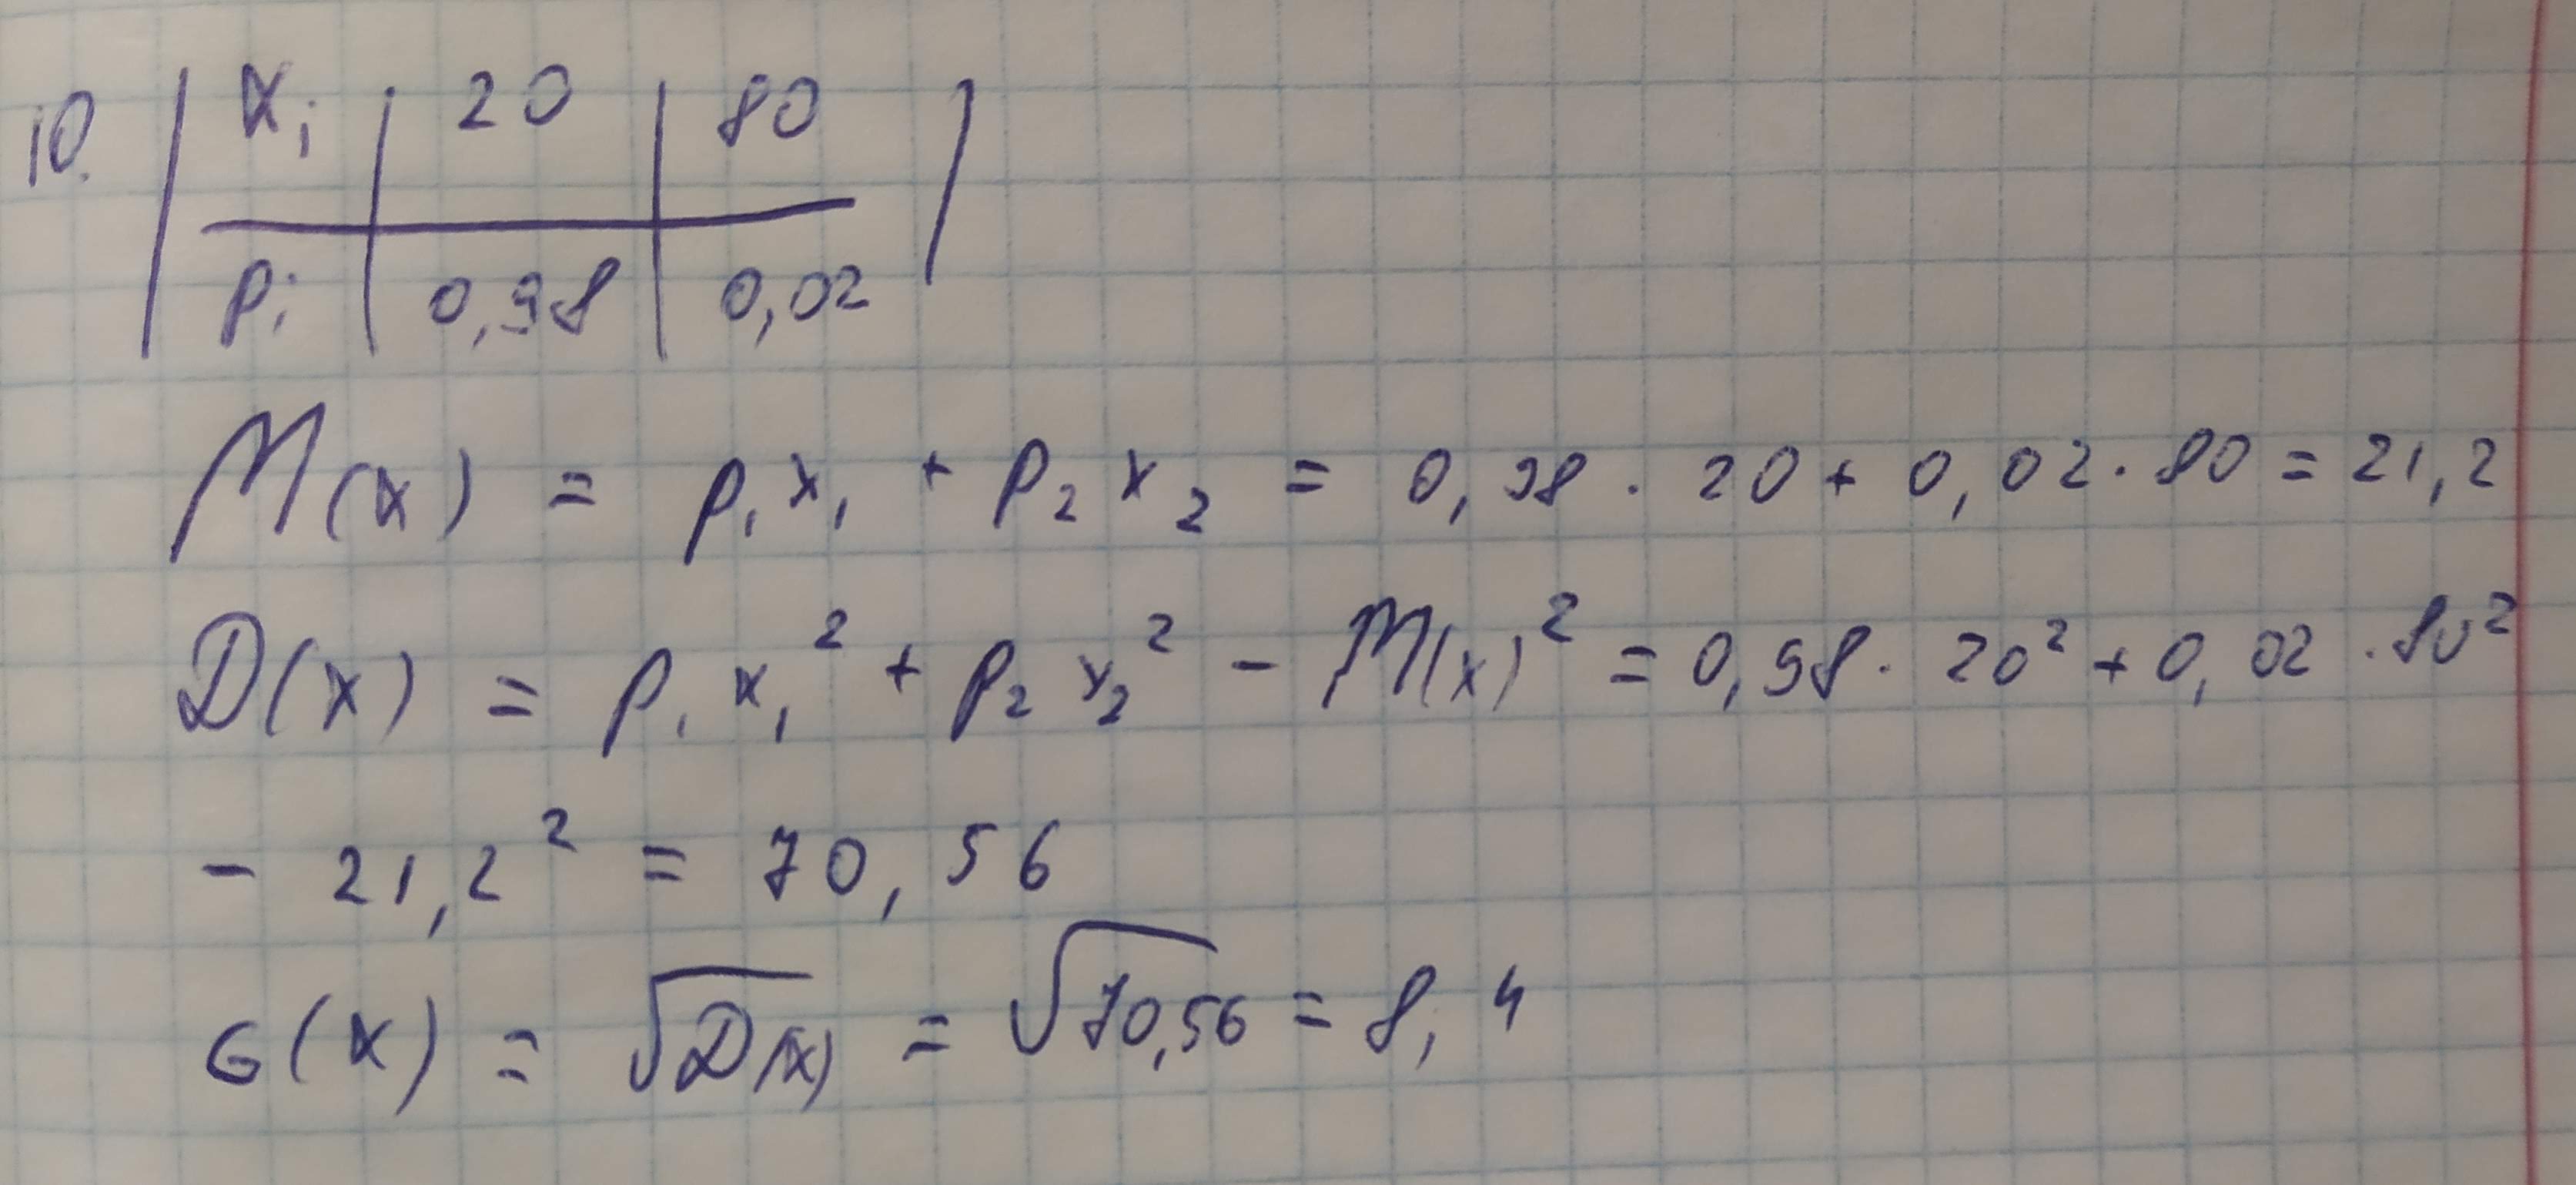 10. | xᵢ | 20 | 80 |
pᵢ | 0,98 | 0,02
M(x) = p₁x₁ + p₂x₂ = 0,98 · 20 + 0,02 · 80 = 21,2
D(x) = p₁x₁² + p₂x₂² - M(x)² = 0,98 · 20² + 0,02 · 80²
- 21,2² = 70,56
σ(x) = √D(x) = √70,56 = 8,4